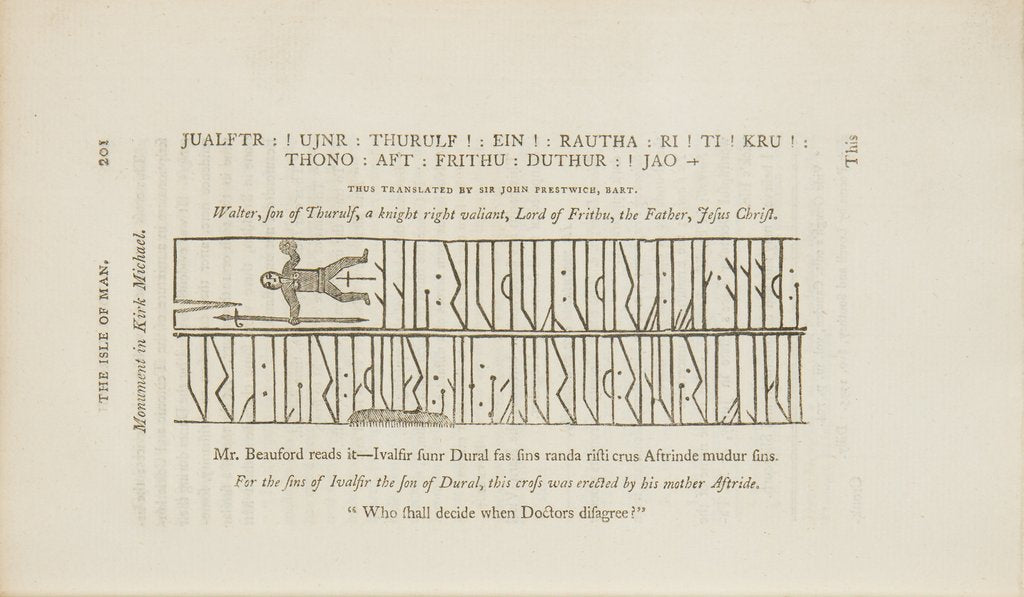 201
THE ISLE OF MAN.
Monument in Kirk Michael.
JUALFTR : ! UJNR : THURULF ! : EIN ! : RAUTHA : RI ! TI ! KRU ! :
THONO : AFT : FRITHU : DUTHUR : ! JAO →
THUS TRANSLATED BY SIR JOHN PRESTWICH, BART.
Walter, ſon of Thurulf, a knight right valiant, Lord of Frithu, the Father, Jeſus Chriſt.
Mr. Beauford reads it—Ivalfir ſunr Dural fas ſins randa riſti crus Aftrinde mudur ſins.
For the ſins of Ivalſir the ſon of Dural, this croſs was erected by his mother Aſtride.
“ Who ſhall decide when Doctors diſagree?”
This